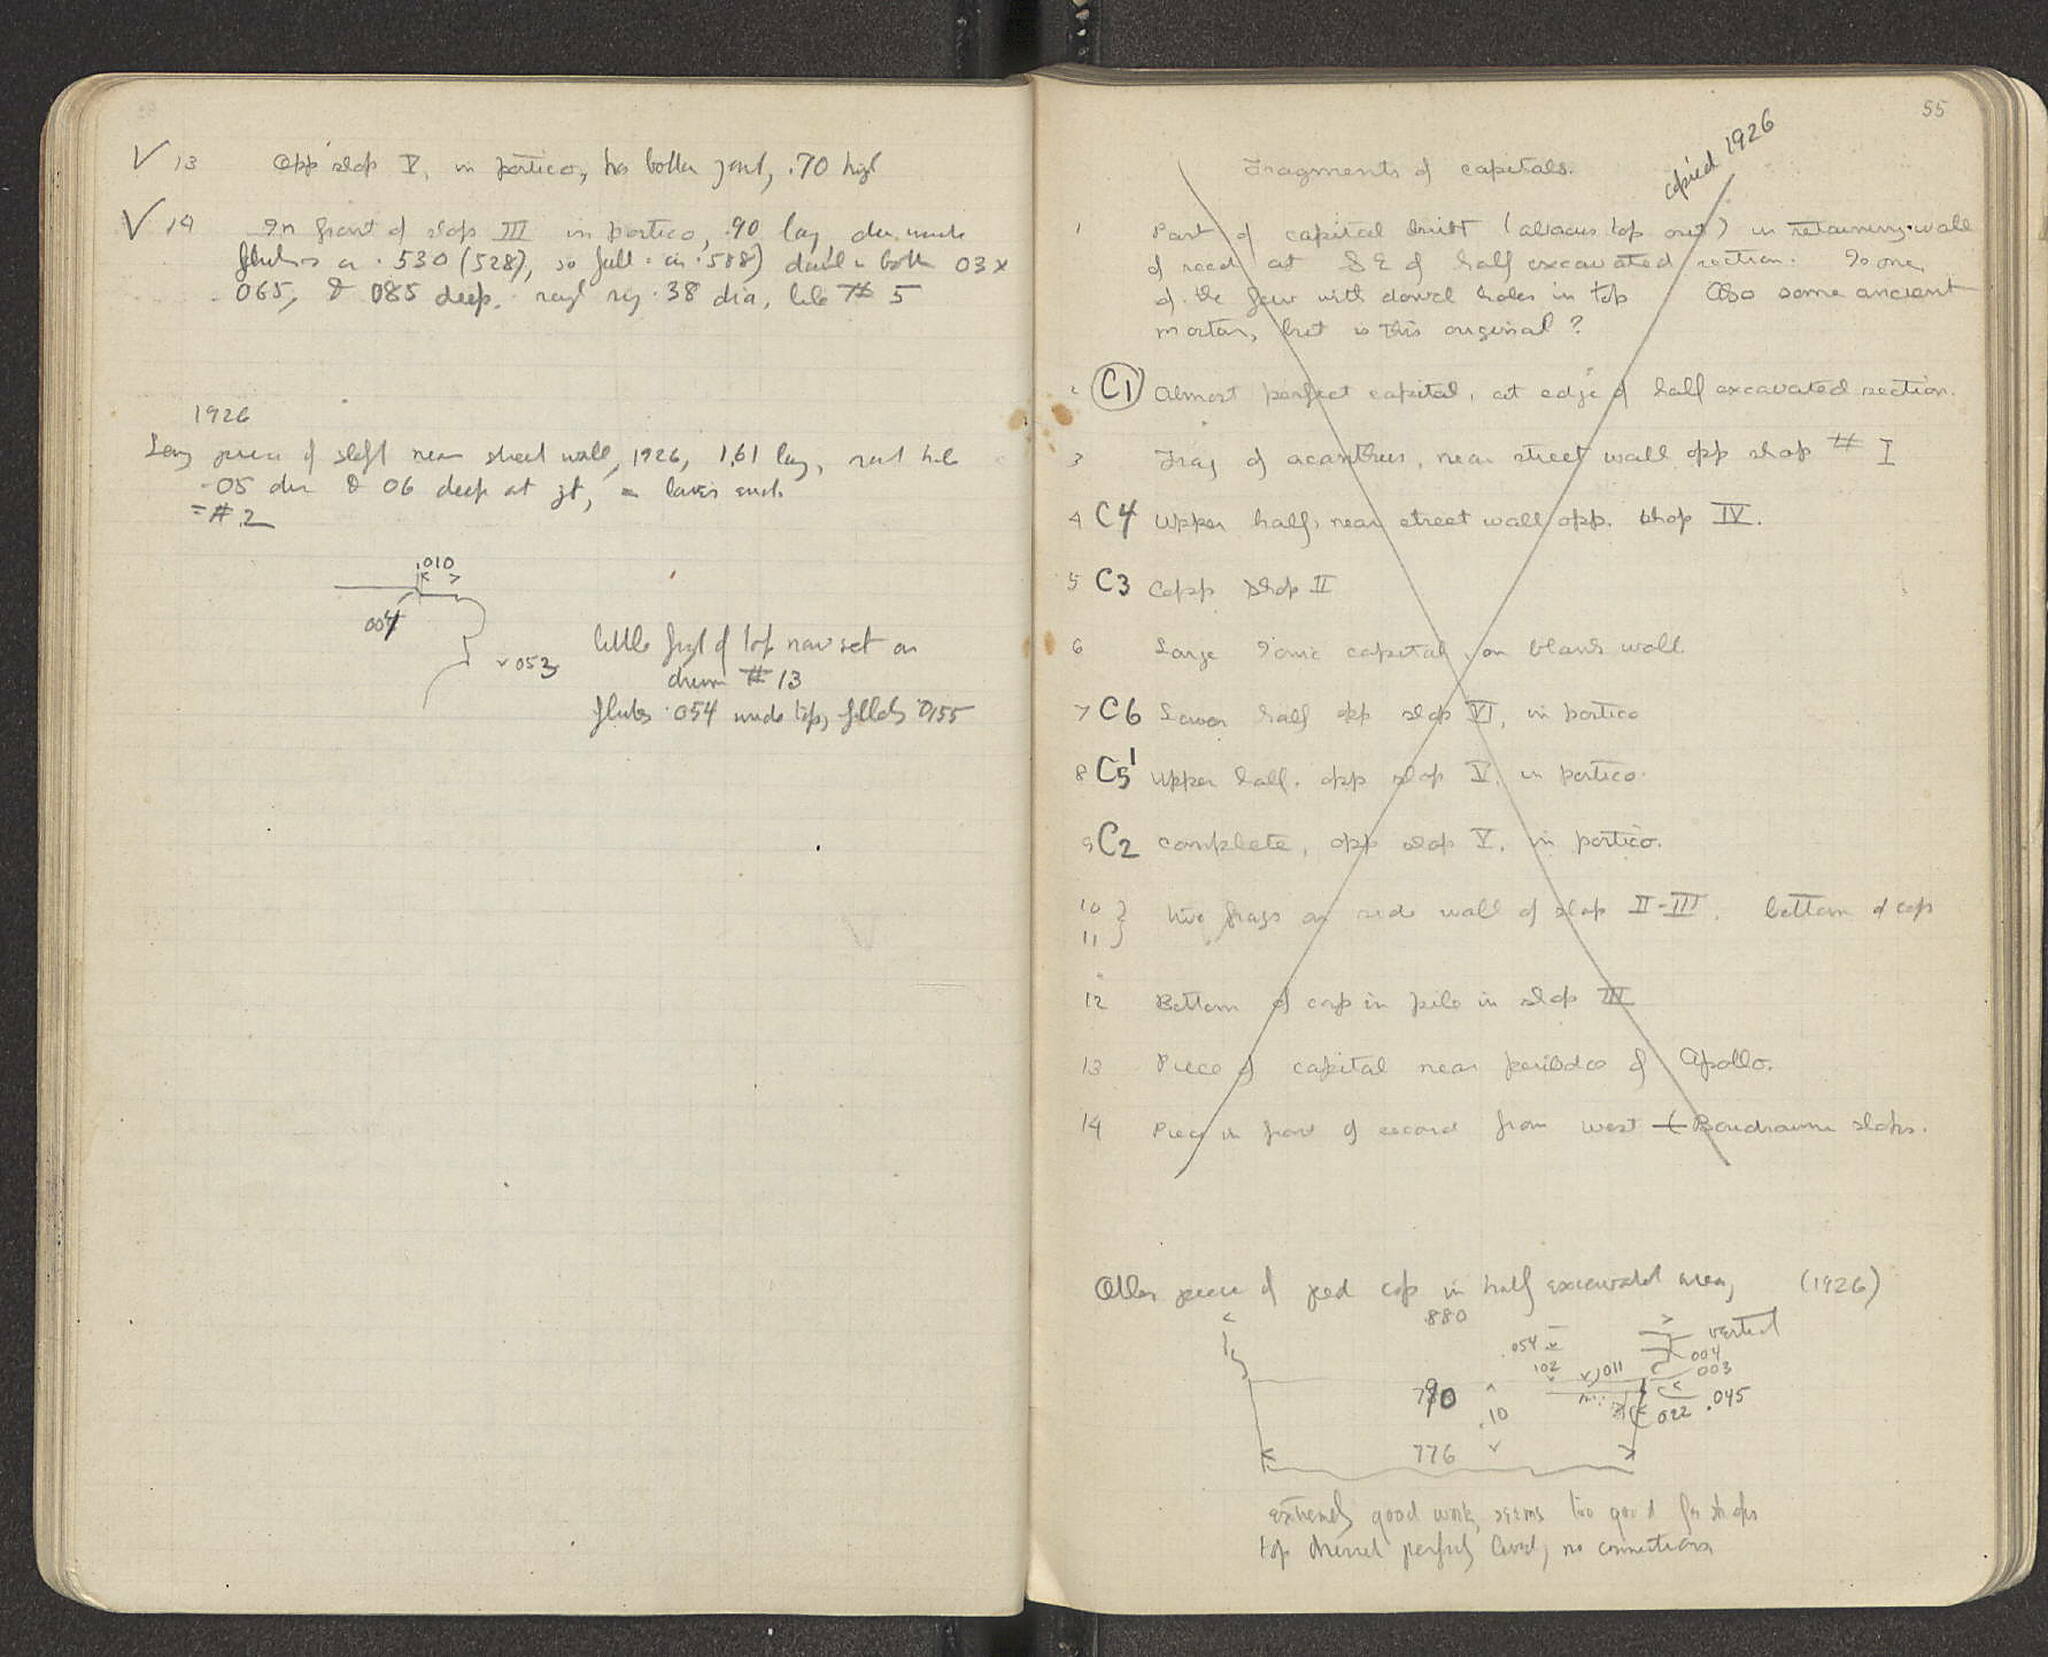 V 13 Opp shop V, in portico, has bottom joint, .70 high
V 14 In front of shop III in portico, .90 long, dia. inside
flutes is .530 (528), so full = .588) dowel in bottom 03 x
065, & 085 deep. rough 38 dia, like # 5
1926
Long piece of shaft near street wall, 1926, 1.61 long, hole
.05 dia & 06 deep at jt, = lower end.
= # 2
.010
004
053
little frgt of top now set on
drum # 13
flutes .054 wide top, fillets 0155
55
Fragments of capitals.
copied 1926
1 Part of capital built (abacus top out) in retaining wall
of road at SE of half excavated section. Is one
of the few with dowel holes in top Also some ancient
mortar, but is this original?
2 C1 Almost perfect capital, at edge of half excavated section.
3 Frag of acanthus, near street wall opp shop # I
4 C4 Upper half, near street wall opp. shop IV.
5 C3 opp shop II
6 Large Ionic capital, on blank wall
7 C6 Lower half opp shop VI, in portico
8 C5 Upper half. opp shop V. in portico.
9 C2 complete, opp shop V. in portico.
10 } two frags on side wall of shop II-III. bottom of cap
11
12 Bottom of cap in pile in shop III
13 Piece of capital near peribolos of Apollo.
14 Piece in front of second from west Boudroumi shops.
Other piece of ped cap in half excavated area, (1926)
880
.054
vertical
004
102
011
003
790
.10
022 .045
776
extremely good work, seems too good for shops
top dressed perfectly level, no connections